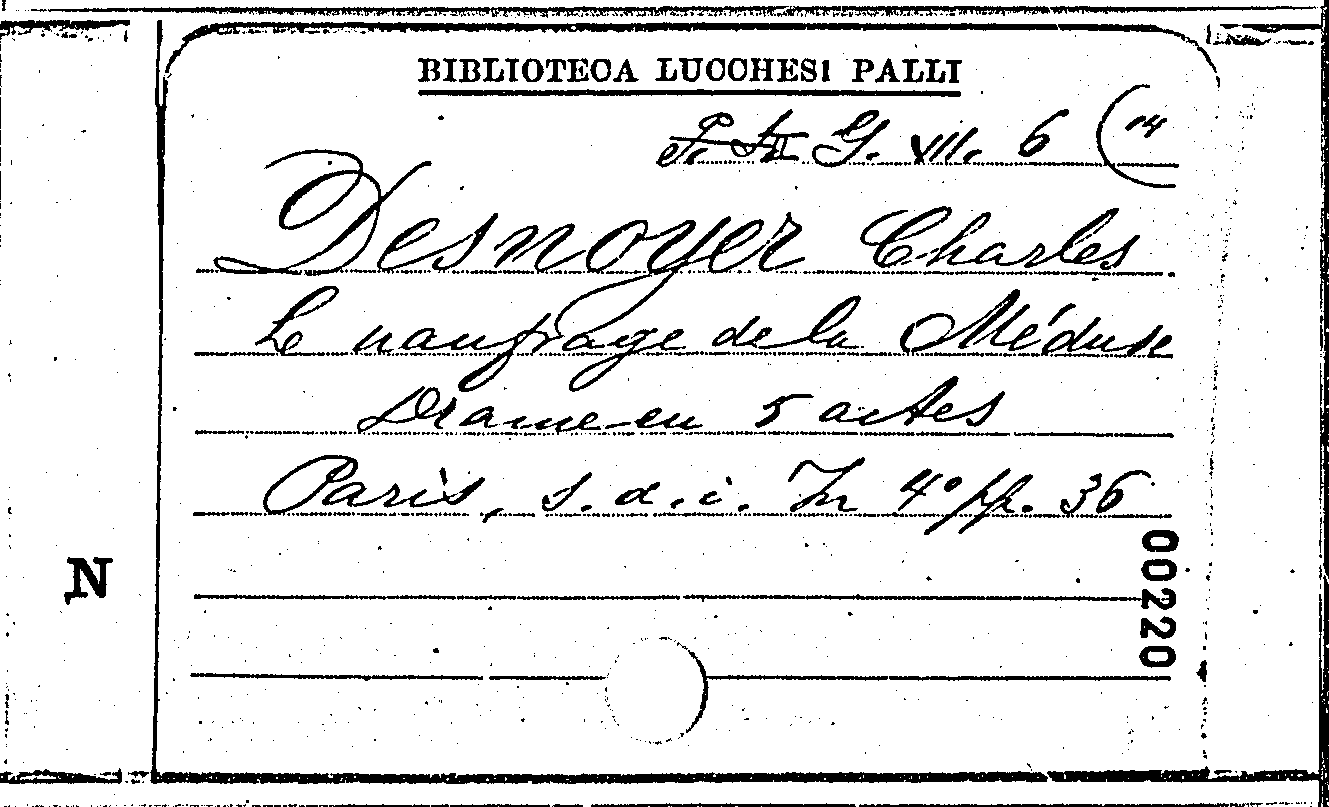 BIBLIOTECA LUCCHESI PALLI
G. VII. 6 (14
Desnoyer Charles
Le naufrage de la Méduse
Drame en 5 actes
Paris, s. d. i. In 4° pp. 36
00220
N